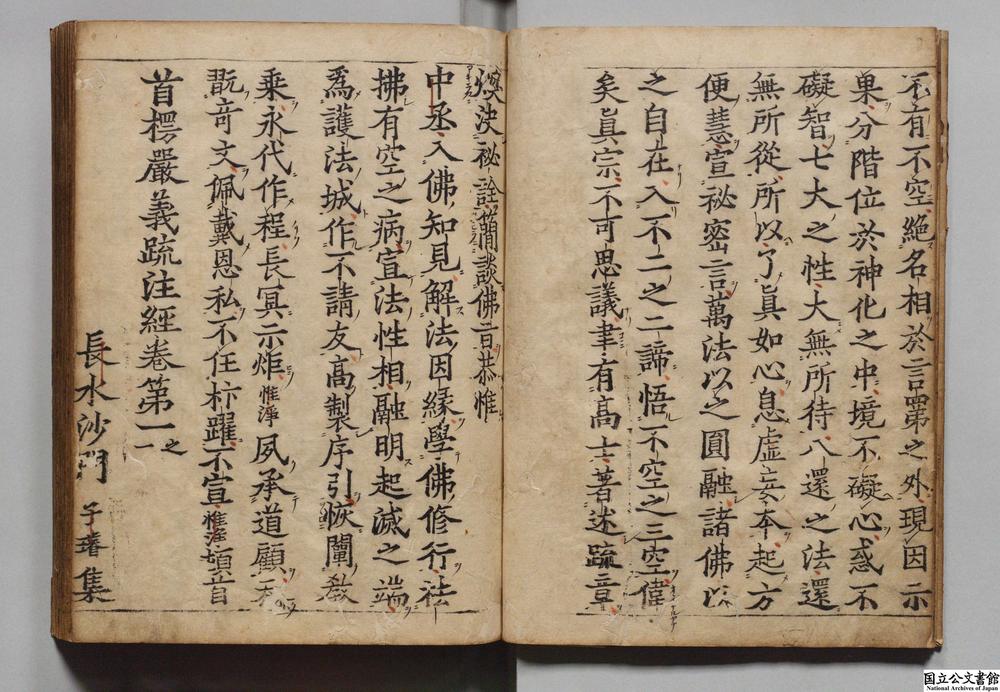 不有不空絶名相於言第之外現因示
果分階位於神化之中境不礙心惑不
礙智七大之性大無所待八還之法還
無所從所以了真如心息虚妄本起方
便慧宣祕密言萬法以之圓融諸佛以
之自在入不二之二諦悟不空之三空偉
矣真宗不可思議聿有高士著述疏章
決祕詮簡談佛旨恭惟
中丞入佛知見解法因緣學佛修行祛
拂有空之病宣法性相融明起滅之端
為護法城作不請友高製序引恢闡教
乗永代作程長冥示炬惟淨夙承道顧
翫奇文佩戴恩私不任抃躍不宣惟淨頓首
首楞嚴義疏注經卷第一之一
長水沙門 子璿集
国立公文書館
National Archives of Japan